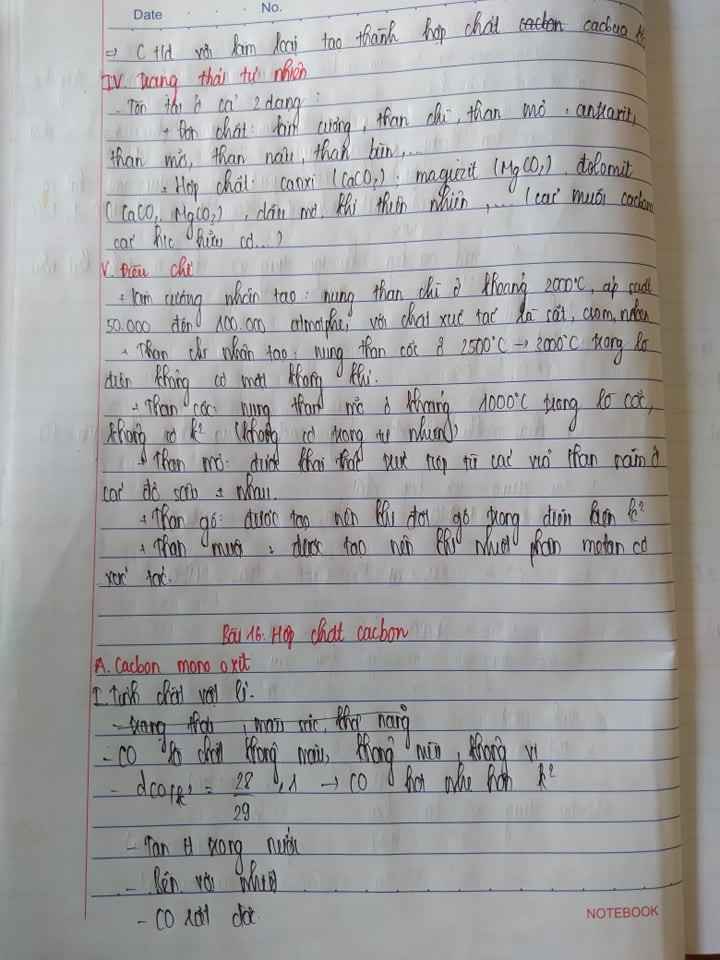 Date No.
⇒ C t/d với kim loại tạo thành hợp chất cacbon cacbua k
IV. Trạng thái tự nhiên
- Tồn tại ở cả 2 dạng :
+ Đơn chất: kim cương, than chì, than mỏ : antraxit,
than mỡ, than nâu, than bùn,...
+ Hợp chất: canxi (CaCO3) ; magiezit (MgCO3), đolomit
(CaCO3 MgCO3), dầu mỏ, khí thiên nhiên,... (các muối cacbon
các h/c hữu cơ...)
V. Điều chế
+ Kim cương nhân tạo : nung than chì ở khoảng 2000°C, áp suất
50.000 đến 100.000 atmotphe, với chất xúc tác là sắt, crom, niken
+ Than chì nhân tạo: nung than cốc ở 2500°C → 3000°C trong lò
điện không có mặt không khí.
+ Than cốc: nung than mỡ ở khoảng 1000°C trong lò cốc,
không có k² (không có trong tự nhiên)
+ Than mỏ: được khai thác trực tiếp từ các vỉa than nằm ở
các độ sâu ≠ nhau.
+ Than gỗ: được tạo nên khi đốt gỗ trong điều kiện k²
+ Than muội : được tạo nên khi nhiệt phân metan có
xúc tác.
Bài 16. Hợp chất cacbon
A. Cacbon mono oxit
I. Tính chất vật lí.
- Trạng thái, màu sắc, khả năng
- CO là chất không màu, không mùi, không vị
- dCO/k² = 28/29 < 1 → CO hơi nhẹ hơn k²
- Tan ít trong nước
- Bền với nhiệt
- CO rất độc
NOTEBOOK